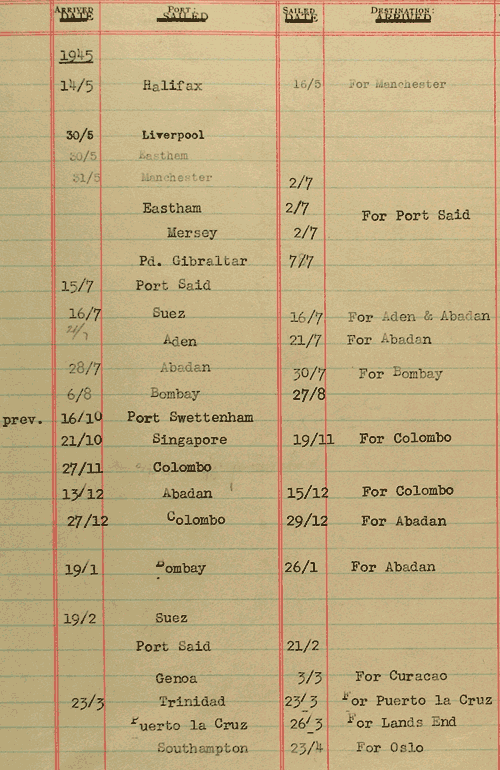 ARRIVED DATE PORT: SAILED SAILED DATE DESTINATION: ARRIVED
1945
14/5 Halifax 16/5 For Manchester
30/5 Liverpool
30/5 Eastham
31/5 Manchester 2/7
Eastham 2/7 For Port Said
Mersey 2/7
Pd. Gibraltar 7/7
15/7 Port Said
16/7 Suez 16/7 For Aden & Abadan
Aden 21/7 For Abadan
28/7 Abadan 30/7 For Bombay
6/8 Bombay 27/8
prev. 16/10 Port Swettenham
21/10 Singapore 19/11 For Colombo
27/11 Colombo
13/12 Abadan 15/12 For Colombo
27/12 Colombo 29/12 For Abadan
19/1 Bombay 26/1 For Abadan
19/2 Suez
Port Said 21/2
Genoa 3/3 For Curacao
23/3 Trinidad 23/3 For Puerto la Cruz
Puerto la Cruz 26/3 For Lands End
Southampton 23/4 For Oslo